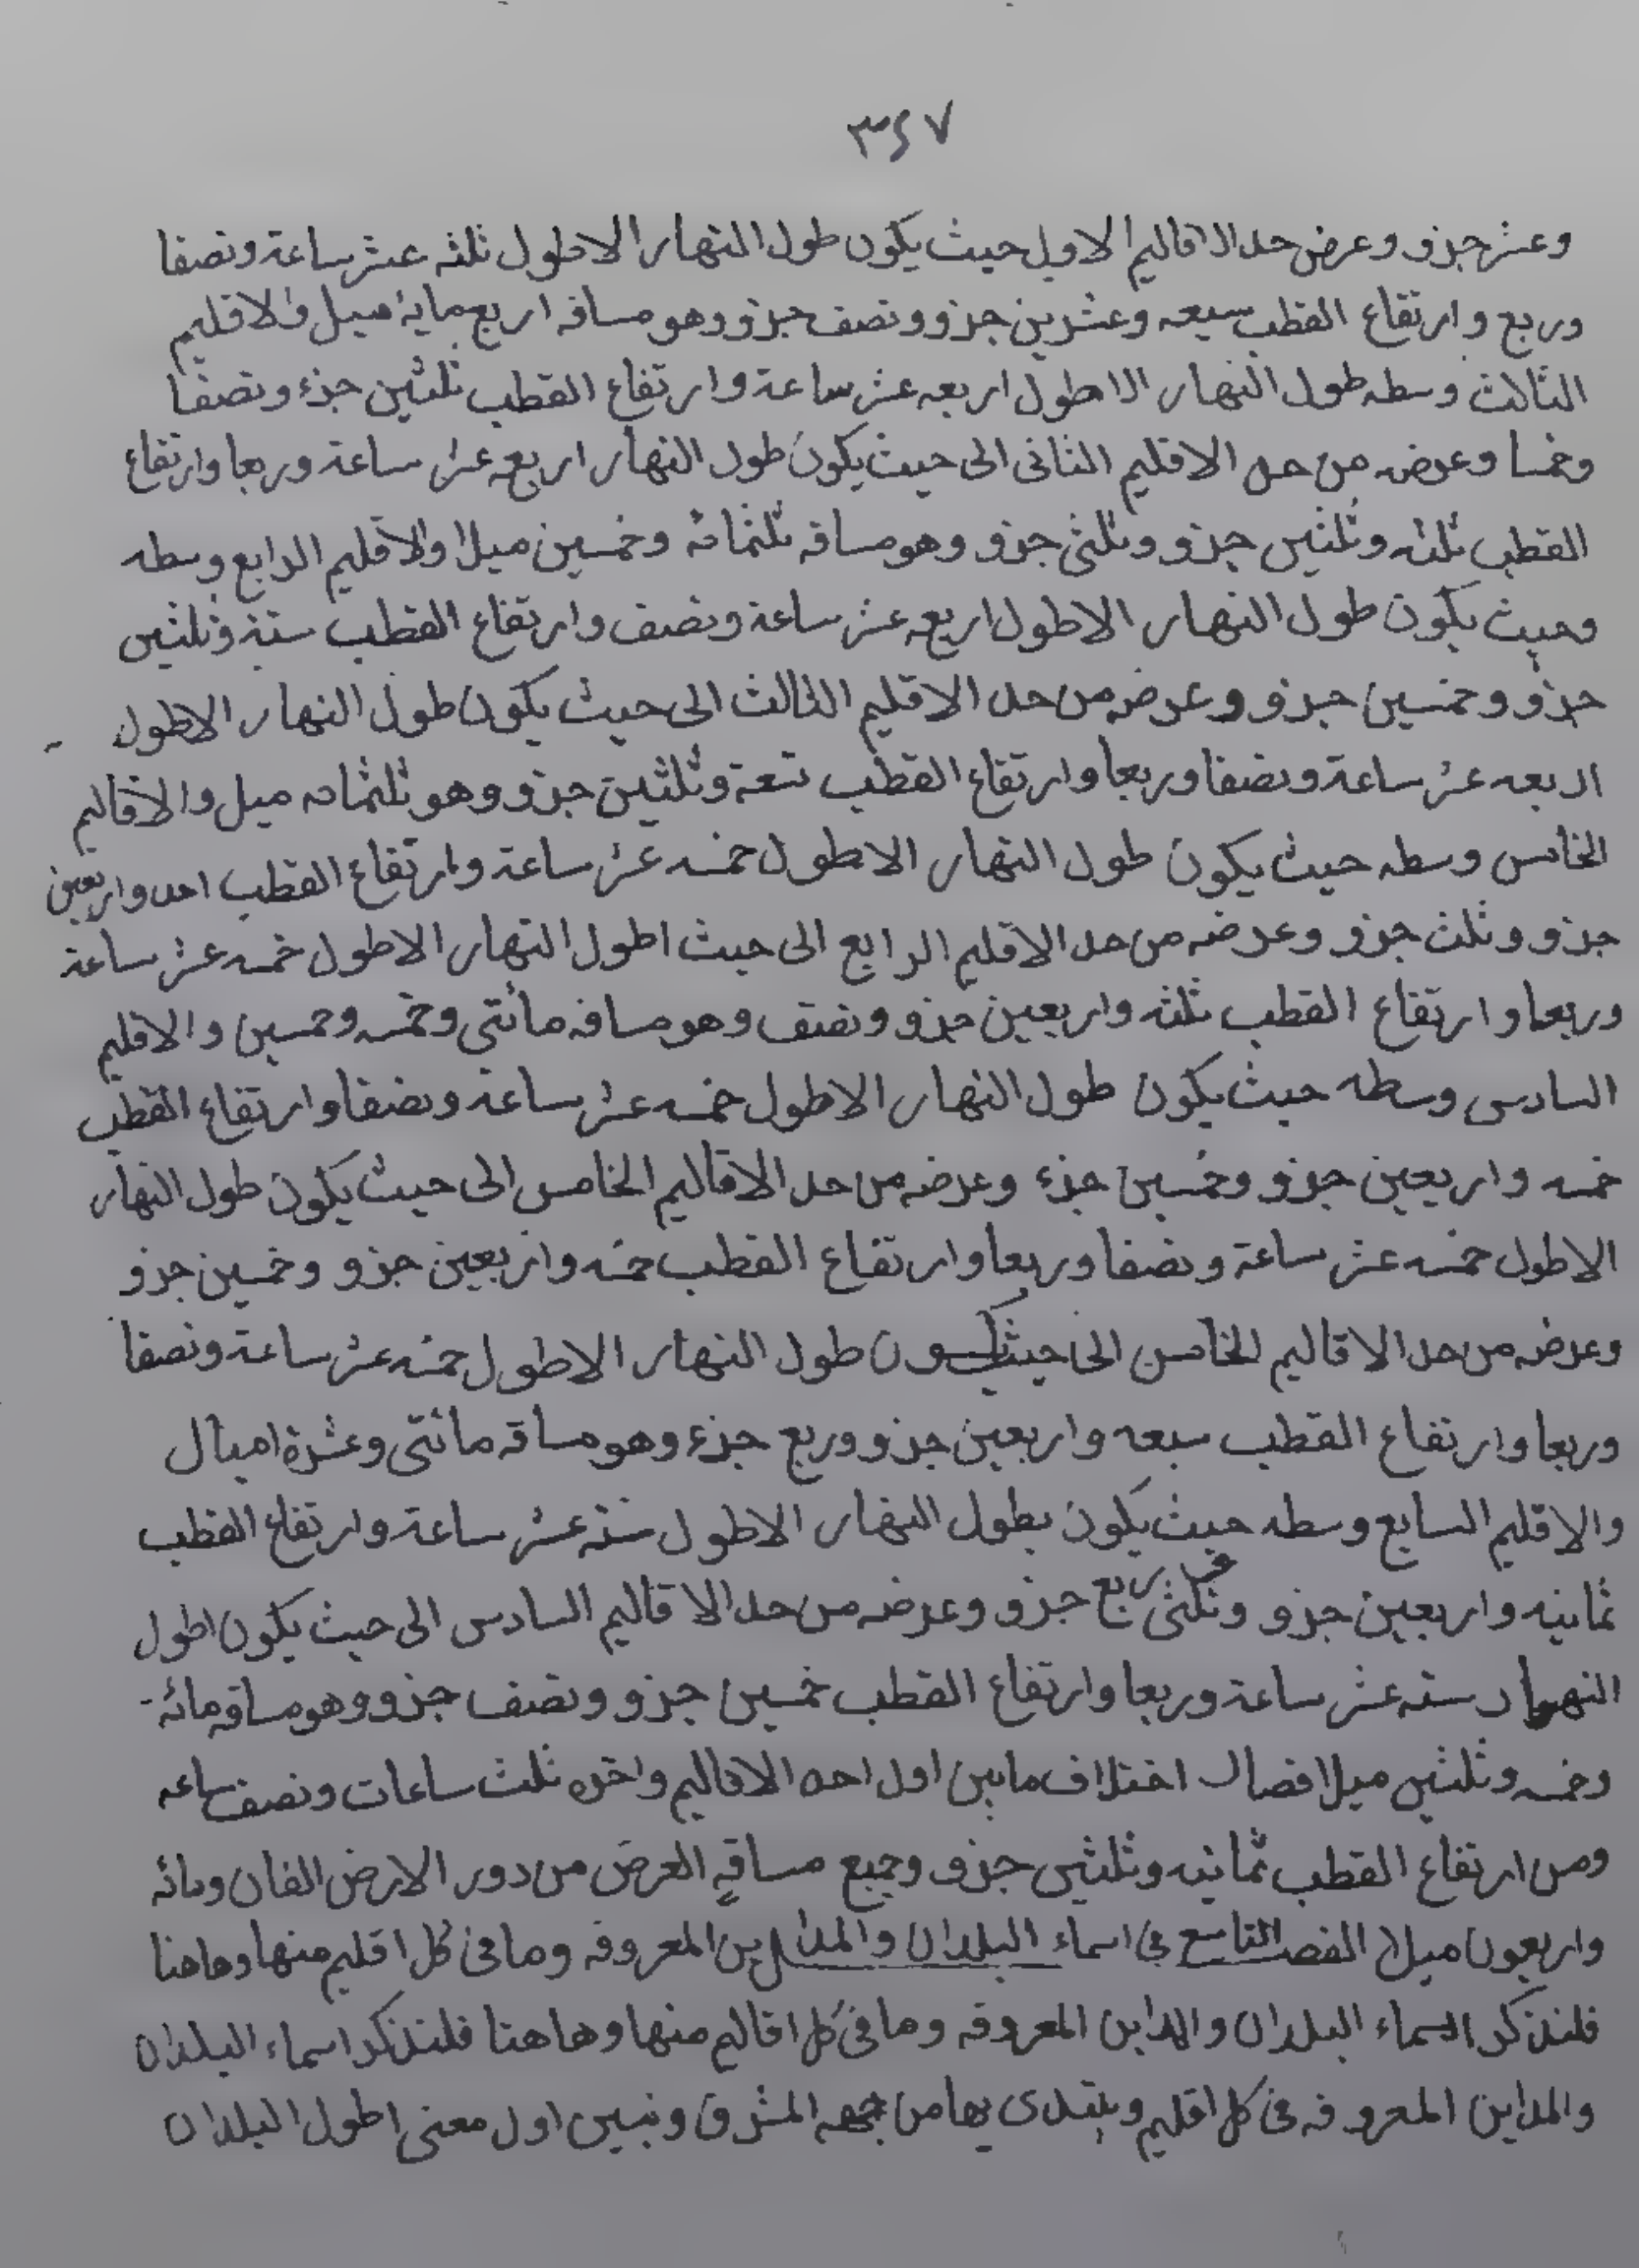 ٣٤٧
وعشر جزو وعرض حد الاقاليم الاول حيث يكون طول النهار الاطول ثلثه عشر ساعة ونصفا
وربع وارتفاع القطب سبعه وعشرين جزو ونصف جزو وهو مسافه اربع مايۀ ميل والاقليم
الثالث وسطه طول النهار الاطول اربعه عشر ساعة وارتفاع القطب ثلثين جزء ونصفا
وخمسا وعرضه من حد الاقليم الثانى الى حيث يكون طول النهار اربعه عشر ساعة وربعا وارتفاع
القطب ثلثه وثلثين جزو وثلثى جزو وهو مسافه ثلثمائه وخمسين ميلا والاقليم الرابع وسطه
وحيث يكون طول النهار الاطول اربعه عشر ساعة ونصف وارتفاع القطب ستة وثلثين
جزو وخمسين جزو وعرضه من حد الاقليم الثالث الى حيث يكون طول النهار الاطول
اربعه عشر ساعة ونصفا وربعا وارتفاع القطب تسعة وثلثين جزو وهو ثلثمائه ميل والاقاليم
الخامس وسطه حيث يكون طول النهار الاطول خمسه عشر ساعة وارتفاع القطب احد واربعين
جزو وثلث جزو وعرضه من حد الاقليم الرابع الى حيث اطول النهار الاطول خمسه عشر ساعة
وربعا وارتفاع القطب ثلثه واربعين جزو ونصف وهو مسافه مائتى وخمسه وخمسين والاقليم
السادس وسطه حيث يكون طول النهار الاطول خمسه عشر ساعة ونصفا وارتفاع القطب
خمسه واربعين جزو وخمسين جزء وعرضه من حد الاقاليم الخامس الى حيث يكون طول النهار
الاطول خمسه عشر ساعة ونصفا وربعا وارتفاع القطب خمسه واربعين جزو وخمسين جزو
وعرضه من حد الاقاليم الخامس الى حيث يكون طول النهار الاطول خمسه عشر ساعة ونصفا
وربعا وارتفاع القطب سبعه واربعين جزو وربع جزء وهو مسافه مائتى وعشرة اميال
والاقليم السابع وسطه حيث يكون بطول النهار الاطول سته عشر ساعة وارتفاع القطب
ثمانيه واربعين جزو وثلثى ربع جزو وعرضه من حد الاقاليم السادس الى حيث يكون اطول
النهار سته عشر ساعة وربعا وارتفاع القطب خمسين جزو ونصف جزو وهو مسافه مائه
وخمسه وثلثين ميلا فصار اختلاف مابين اول احد الاقاليم واخره ثلث ساعات ونصف ساعه
ومن ارتفاع القطب ثمانيه وثلثين جزو وجميع مسافه العرض من دور الارض الفان ومائه
واربعون ميلا الفصل التاسع فى اسماء البلدان والمداين المعروفه وما فى كل اقليم منها وهاهنا
فلنذكر اسماء البلدان والمداين المعروفه وما فى كل اقاليم منها وهاهنا فلنذكر اسماء البلدان
والمداين المعروفه فى كل اقليم ويبتدى بها من جهه المشرق ونبين اول معنى اطول البلدان